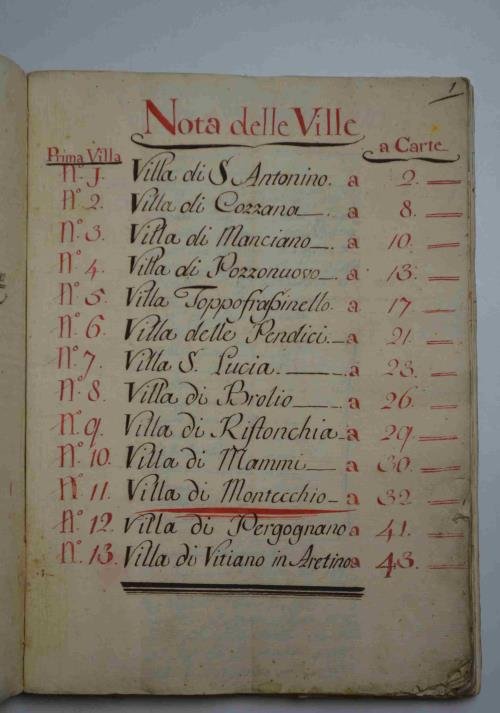 1
Nota delle Ville
Prima Villa a Carte
N.º 1. Villa di S Antonino. a 2.
N.º 2. Villa di Cozzana a 8.
N.º 3. Villa di Manciano a 10.
N.º 4. Villa di Pozzonuovo a 13.
N.º 5. Villa Toppofraſsinello. a 17
N.º 6. Villa delle Pendici. a 21.
N.º 7. Villa S. Lucia. a 23.
N.º 8. Villa di Brolio a 26.
N.º 9. Villa di Riſtonchia a 29.
N.º 10. Villa di Mammi a 30.
N.º 11. Villa di Montecchio a 32.
N.º 12. Villa di Pergognano a 41.
N.º 13. Villa di Vitiano in Aretino a 43.